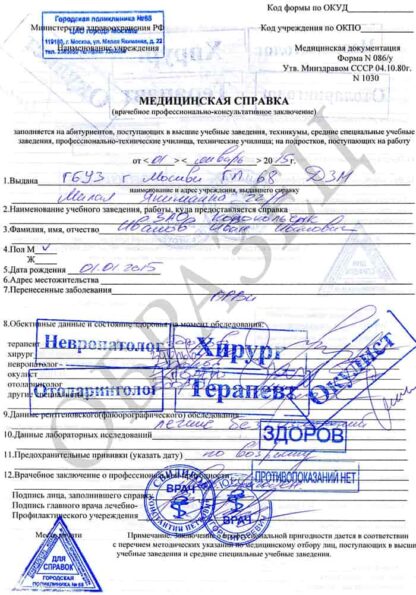 Код формы по ОКУД
Городская поликлиника №68
ЦАО города Москвы
119180, г. Москва, ул. Малая Якиманка, д. 22
Министерство здравоохранения РФ
Код учреждения по ОКПО
Наименование учреждения
Медицинская документация
Форма N 086/у
Утв. Минздравом СССР 04.10.80г.
N 1030
Хирург
МЕДИЦИНСКАЯ СПРАВКА
(врачебное профессионально-консультативное заключение)
заполняется на абитуриентов, поступающих в высшие учебные заведения, техникумы, средние специальные учебные
заведения, профессионально-технические училища, технические училища; на подростков, поступающих на работу
от «01» январь 2015г.
1.Выдана ГБУЗ г Москвы ГП 68 ДЗМ
Малая Якиманка 22/
наименование и адрес учреждения, выдавшего справку
2.Наименование учебного заведения, работы, куда предоставляется справка
ЗАО
3.Фамилия, имя, отчество Иванов Иван Иванович
4.Пол М V
Ж
5.Дата рождения 01.01.2015
6.Адрес местожительства
7.Перенесенные заболевания ОРВИ
8.Обективные данные и состояние здоровья на момент обследования:
терапевт
хирург
невропатолог
окулист
отоларинголог
другие специалисты
Невропатолог
Хирург
Окулист
Отоларинголог
Терапевт
9.Данные рентгеновского(флюорографического) обследования
легкие без
10.Данные лабораторных исследований
ЗДОРОВ
11.Предохранительные прививки (указать дату) по возрасту
12.Врачебное заключение о профессиональной пригодности
ПРОТИВОПОКАЗАНИЙ НЕТ
Подпись лица, заполнившего справку
Подпись главного врача лечебно-
Профилактического учереждения
ВРАЧ
ВРАЧ
Место печати
Примечание. Заключение о профессиональной пригодности дается в соответствии
с перечнем методических указания по медицинскому отбору лиц, поступающих в высшие
учебные заведения и средние специальные учебные заведения.
ДЛЯ
СПРАВОК
ГОРОДСКАЯ
ПОЛИКЛИНИКА № 68
ОБРАЗЕЦ